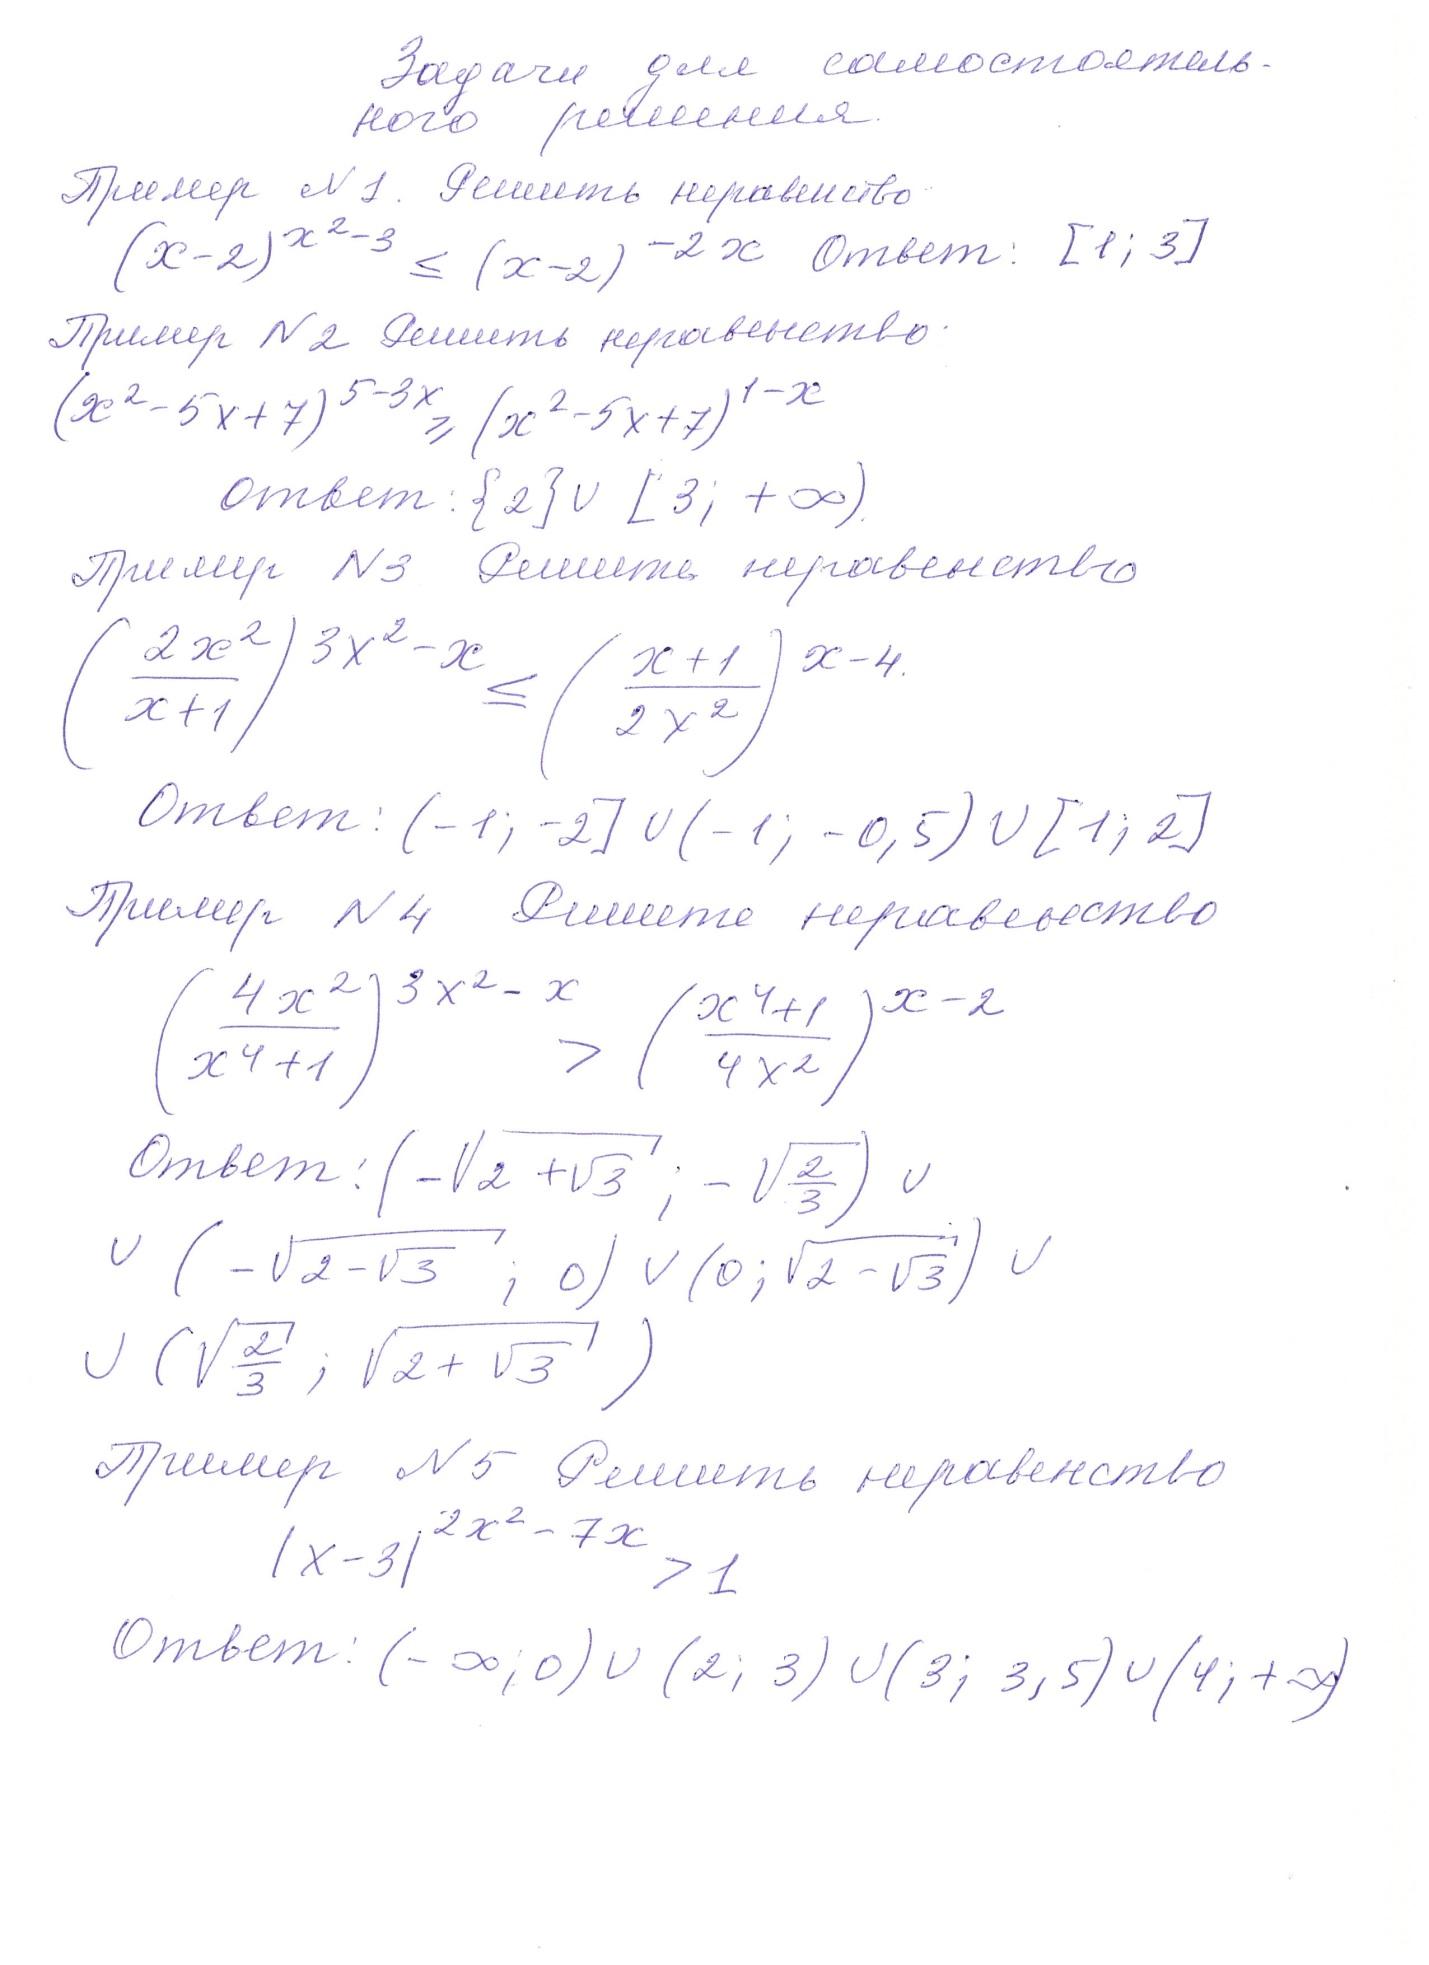 Задачи для самостоятель-
ного решения.
Пример N1. Решить неравенство
(x-2)^{x²-3} ≤ (x-2)^{-2x} Ответ: [1; 3]
Пример N2 Решить неравенство.
(x²-5x+7)^{5-3x} ≥ (x²-5x+7)^{1-x}
Ответ: {2} ∪ [3; +∞).
Пример N3 Решить неравенство
(2x²/(x+1))^{3x²-x} ≤ ((x+1)/(2x²))^{x-4}.
Ответ: (-1; -2] ∪ (-1; -0,5) ∪ [1; 2]
Пример N4 Решите неравенство
(4x²/(x⁴+1))^{3x²-x} > ((x⁴+1)/(4x²))^{x-2}
Ответ: (-√(2+√3); -√(2/3)) ∪
∪ (-√(2-√3); 0) ∪ (0; √(2-√3)) ∪
∪ (√(2/3); √(2+√3))
Пример N5 Решить неравенство
|x-3|^{2x²-7x} > 1
Ответ: (-∞; 0) ∪ (2; 3) ∪ (3; 3,5) ∪ (4; +∞)